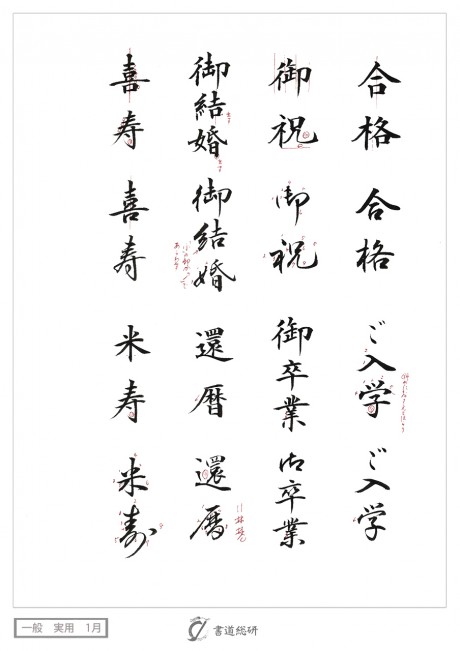 合格
合格
ご入学
ご入学
御祝
御祝
御卒業
御卒業
御結婚
御結婚
還暦
還暦
喜寿
喜寿
米寿
米寿
一般 実用 1月
書道総研